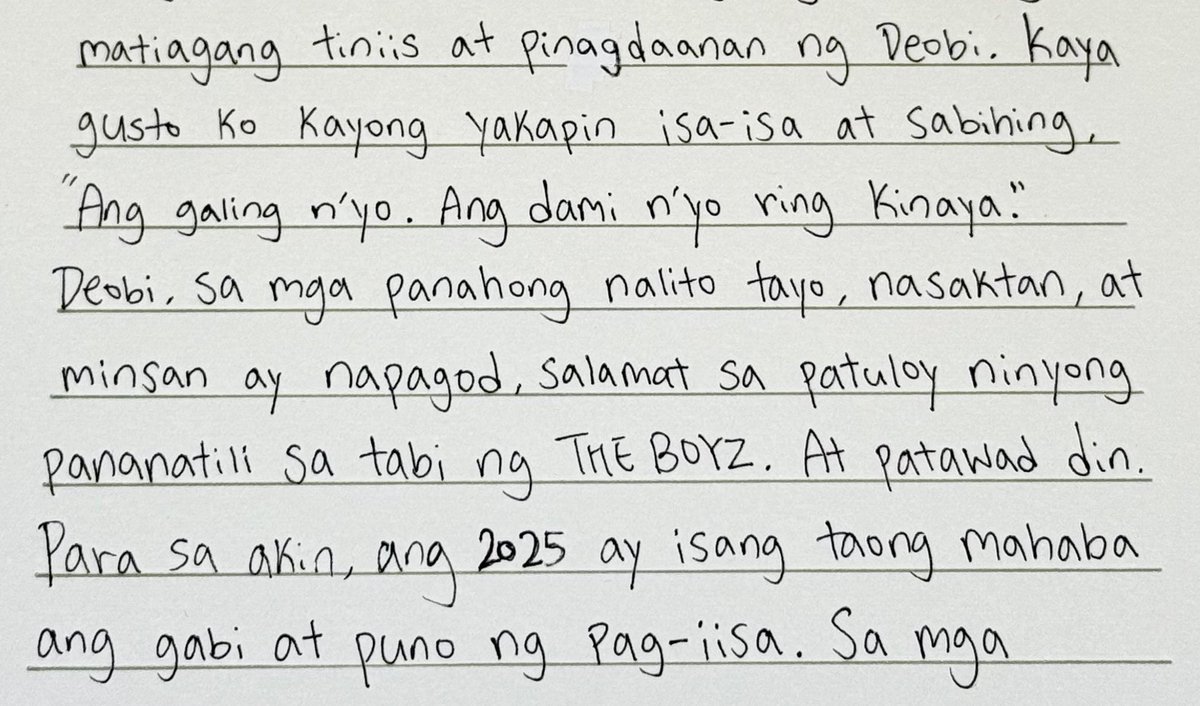 matiagang tiniis at pinagdaanan ng Deobi. Kaya
gusto ko kayong yakapin isa-isa at sabihing,
"Ang galing n'yo. Ang dami n'yo ring kinaya."
Deobi, sa mga panahong nalito tayo, nasaktan, at
minsan ay napagod, salamat sa patuloy ninyong
pananatili sa tabi ng THE BOYZ. At patawad din.
Para sa akin, ang 2025 ay isang taong mahaba
ang gabi at puno ng pag-iisa. Sa mga